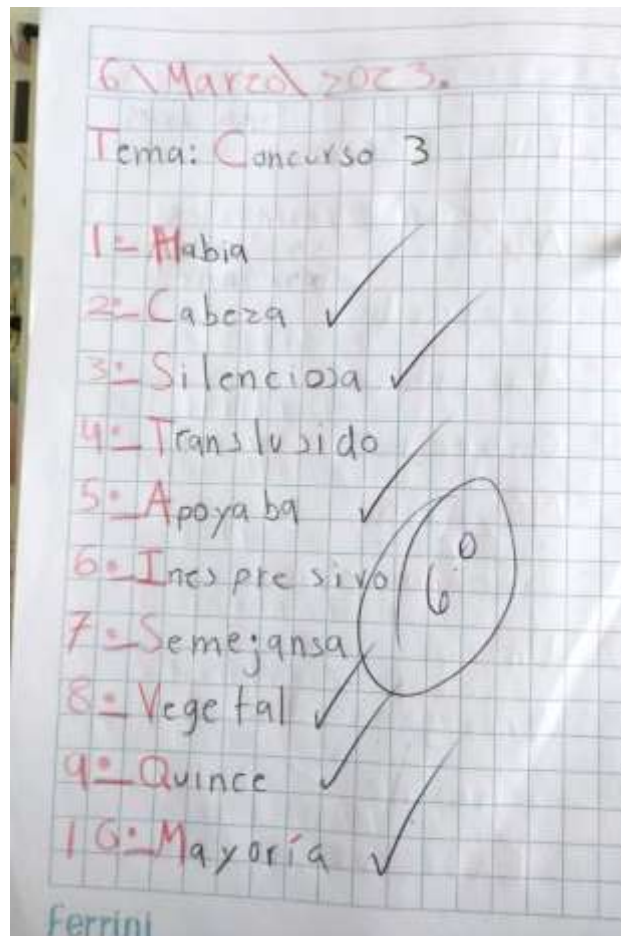 6\Marzo\2023.
Tema: Concurso 3
1-Habia
2-Cabeza
3-Silenciosa
4-Translusido
5-Apoyaba
6-Inespresivo
7-Semejansa
6.0
8-Vegetal
9-Quince
10-Mayoría
Ferrini